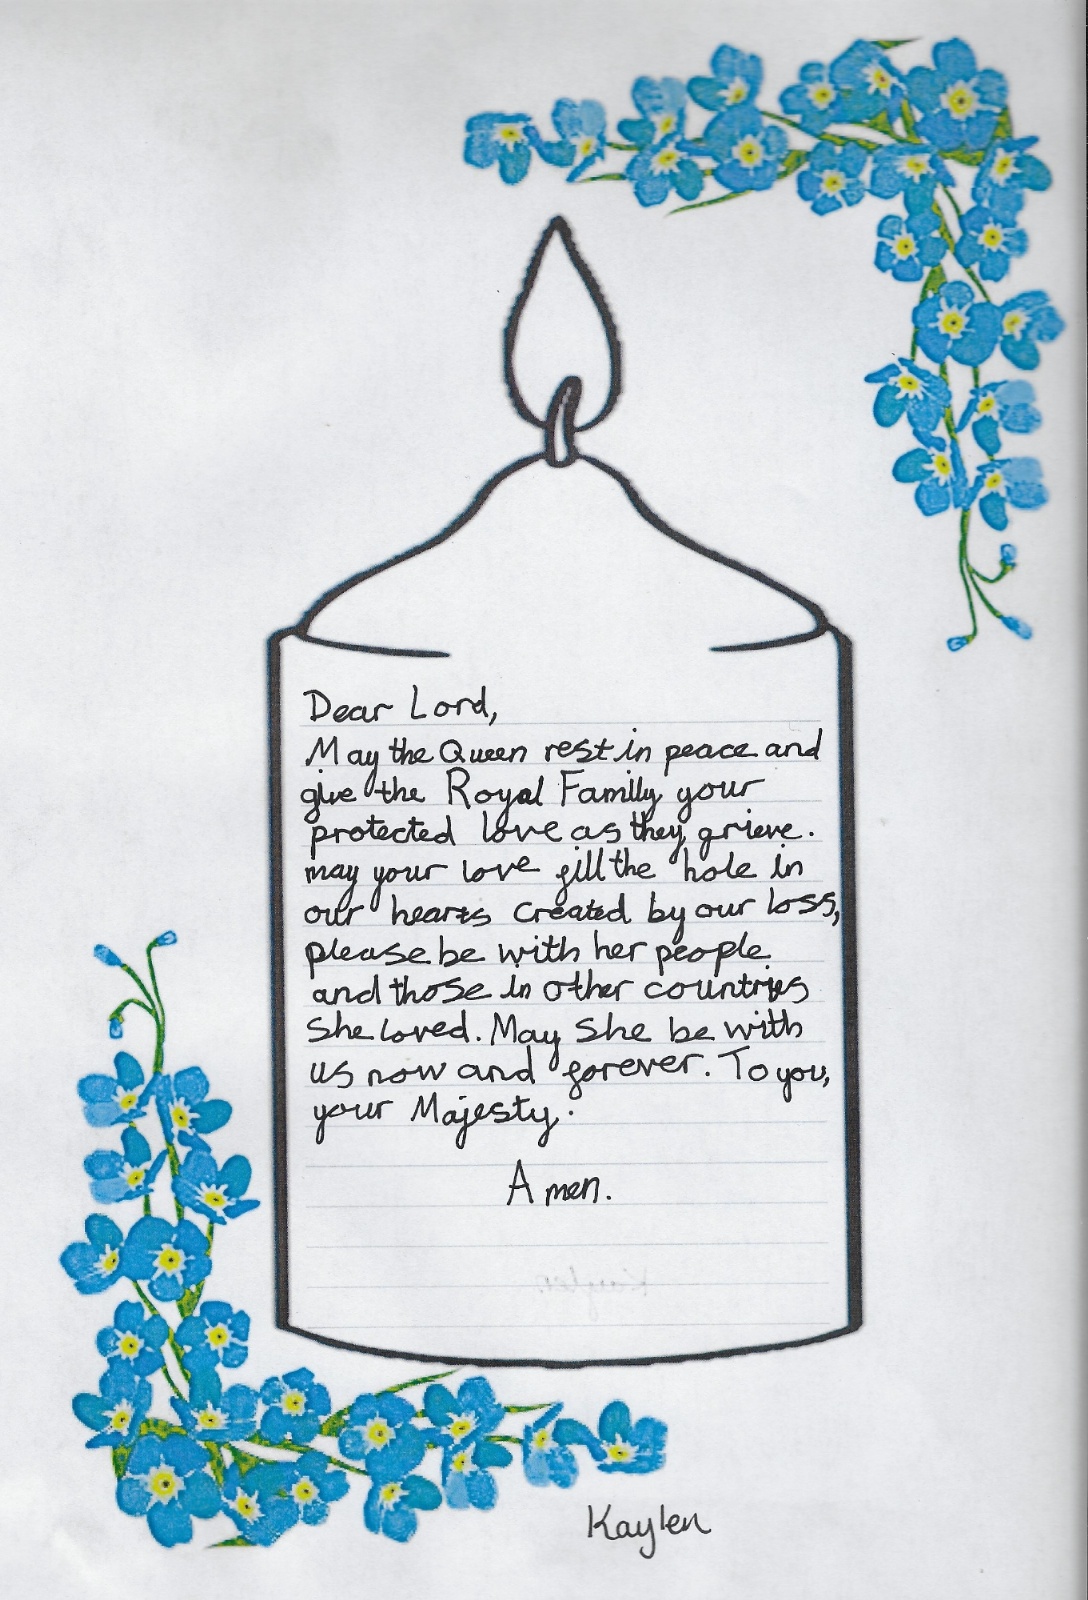 Dear Lord,
May the Queen rest in peace and
give the Royal Family your
protected love as they grieve.
may your love fill the hole in
our hearts created by our loss,
please be with her people
and those in other countries
She loved. May She be with
us now and forever. To you,
your Majesty.
Amen.
Kaylen